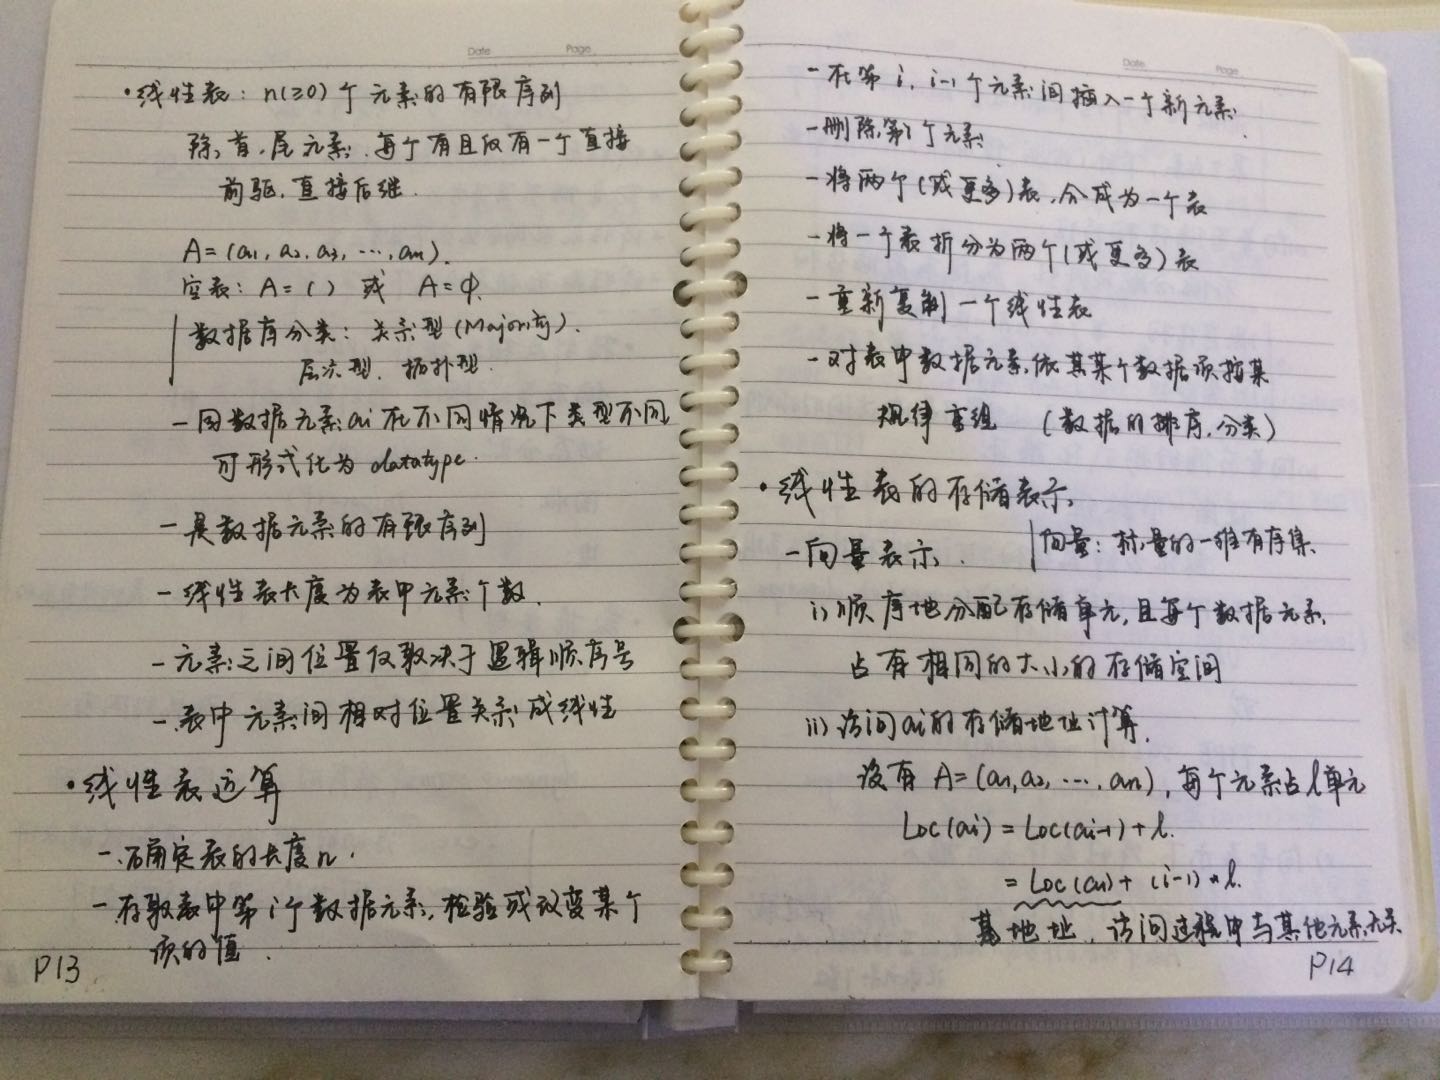 Date Page
·线性表: n(≥0)个元素的有限序列
除首、尾元素,每个有且仅有一个直接
前驱,直接后继.
A=(a1, a2, a3, ···, an).
空表: A=() 或 A=Φ.
数据库分类: 关系型(Majority).
层次型、拓扑型.
-因数据元素ai在不同情况下类型不同
可形式化为 datatype.
-是数据元素的有限序列
-线性表长度为表中元素个数.
-元素之间位置仅取决于逻辑顺序号
-表中元素间相对位置关系成线性
·线性表运算
-确定表的长度n.
-存取表中第i个数据元素,检验或改变某个
项的值.
P13
Date Page
-在第i, i-1个元素间插入一个新元素.
-删除第i个元素
-将两个(或更多)表,合成为一个表
-将一个表拆分为两个(或更多)表
-重新复制一个线性表
-对表中数据元素,依其某个数据项按某
规律重组 (数据的排序,分类)
·线性表的存储表示
-向量表示. 向量: 标量的一维有序集.
i)顺序地分配存储单元,且每个数据元素
占有相同的大小的存储空间
ii)访问ai的存储地址计算.
设有 A=(a1,a2, ···, an), 每个元素占l单元
Loc(ai) = Loc(ai-1)+l.
= Loc(a1)+(i-1)*l.
基地址、访问过程中与其他元素无关
P14